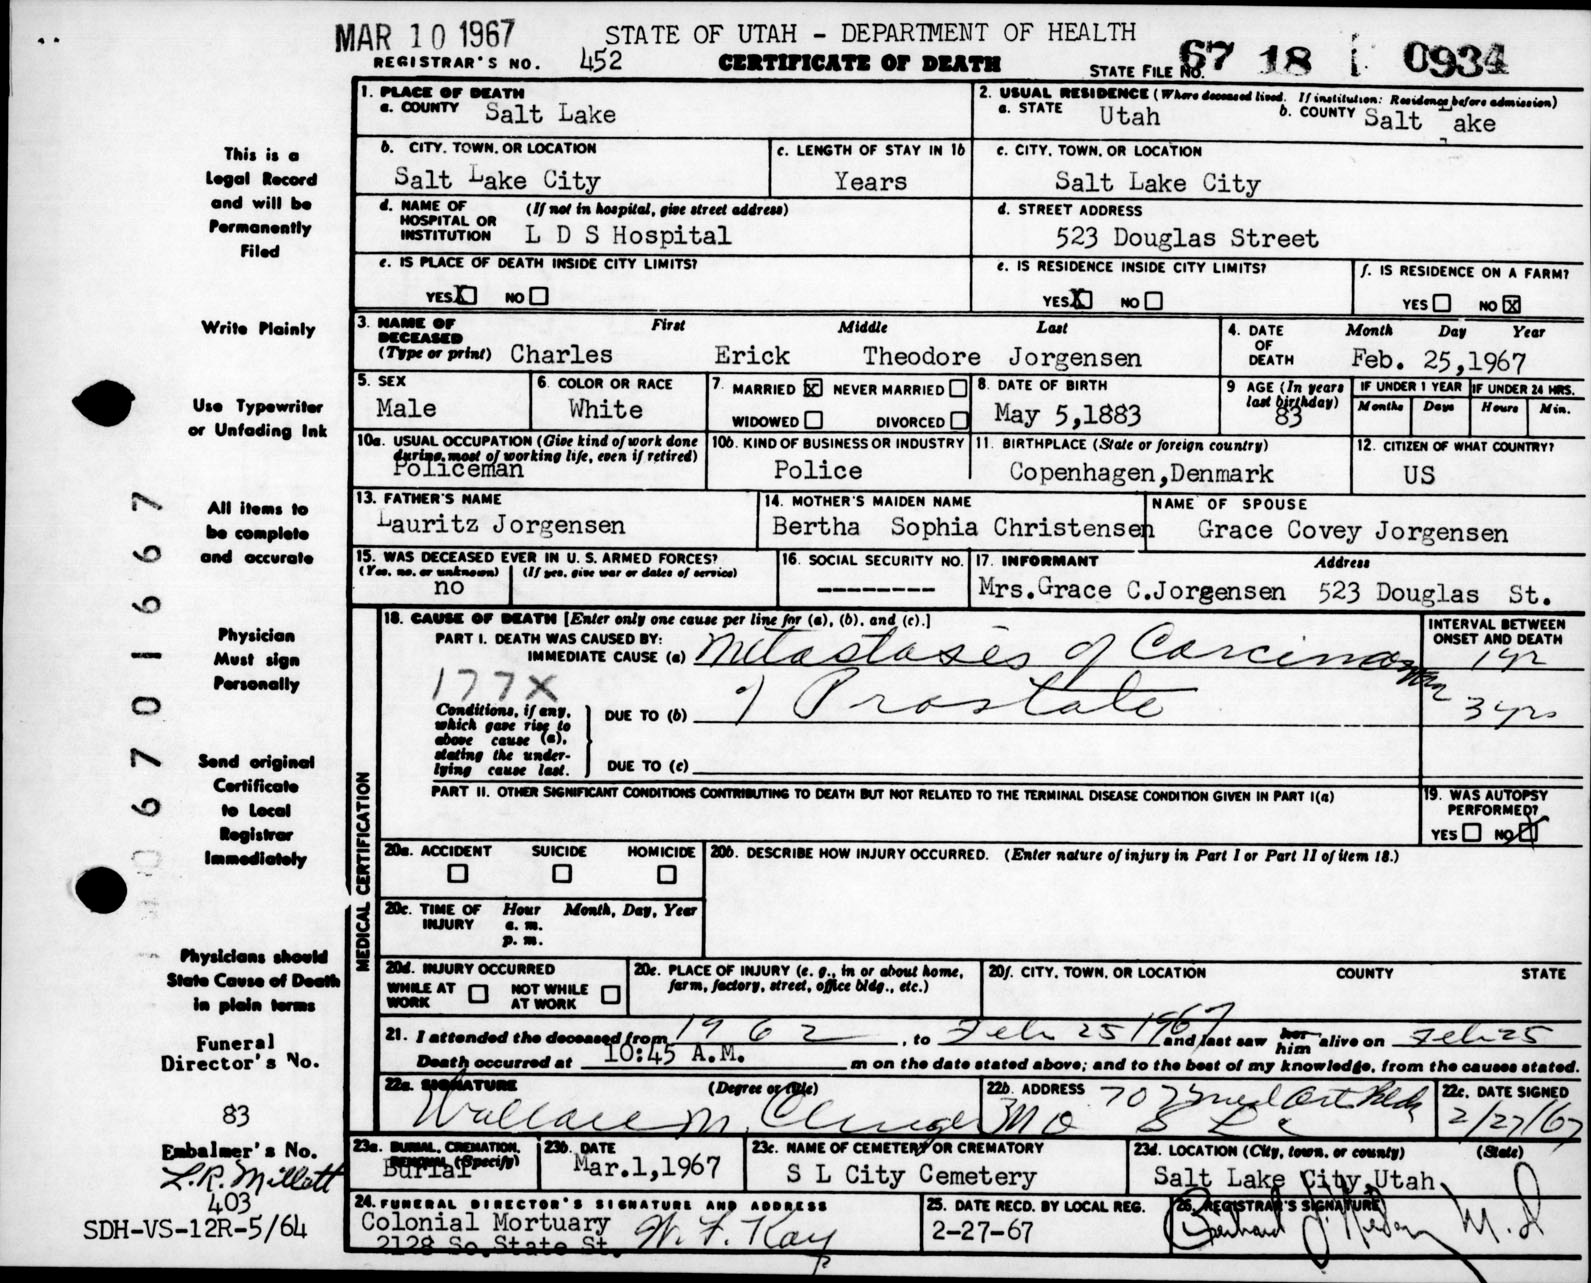 MAR 10 1967
STATE OF UTAH - DEPARTMENT OF HEALTH
REGISTRAR'S NO. 452
CERTIFICATE OF DEATH
STATE FILE NO. 67 18 0934
This is a
Legal Record
and will be
Permanently
Filed
Write Plainly
Use Typewriter
or Unfading Ink
All items to
be complete
and accurate
Physician
Must sign
Personally
Send original
Certificate
to Local
Registrar
Immediately
Physicians should
State Cause of Death
in plain terms
Funeral
Director's No.
83
Embalmer's No.
L.R. Millett
403
SDH-VS-12R-5/64
067701667
1. PLACE OF DEATH
a. COUNTY Salt Lake
2. USUAL RESIDENCE (Where deceased lived. If institution: Residence before admission)
a. STATE Utah b. COUNTY Salt Lake
b. CITY, TOWN, OR LOCATION
Salt Lake City
c. LENGTH OF STAY IN 1b
Years
c. CITY, TOWN, OR LOCATION
Salt Lake City
d. NAME OF HOSPITAL OR INSTITUTION (If not in hospital, give street address)
L D S Hospital
d. STREET ADDRESS
523 Douglas Street
e. IS PLACE OF DEATH INSIDE CITY LIMITS?
YES X NO
e. IS RESIDENCE INSIDE CITY LIMITS?
YES X NO
f. IS RESIDENCE ON A FARM?
YES NO X
3. NAME OF DECEASED (Type or print) First Middle Last
Charles Erick Theodore Jorgensen
4. DATE OF DEATH Month Day Year
Feb. 25,1967
5. SEX
Male
6. COLOR OR RACE
White
7. MARRIED X NEVER MARRIED
WIDOWED DIVORCED
8. DATE OF BIRTH
May 5,1883
9 AGE (In years last birthday)
83
IF UNDER 1 YEAR
Months Days
IF UNDER 24 HRS.
Hours Min.
10a. USUAL OCCUPATION (Give kind of work done during most of working life, even if retired)
Policeman
10b. KIND OF BUSINESS OR INDUSTRY
Police
11. BIRTHPLACE (State or foreign country)
Copenhagen,Denmark
12. CITIZEN OF WHAT COUNTRY?
US
13. FATHER'S NAME
Lauritz Jorgensen
14. MOTHER'S MAIDEN NAME
Bertha Sophia Christensen
NAME OF SPOUSE
Grace Covey Jorgensen
15. WAS DECEASED EVER IN U. S. ARMED FORCES?
(Yes, no, or unknown) (If yes, give war or dates of service)
no
16. SOCIAL SECURITY NO.
--------
17. INFORMANT Address
Mrs.Grace C.Jorgensen 523 Douglas St.
MEDICAL CERTIFICATION
18. CAUSE OF DEATH [Enter only one cause per line for (a), (b), and (c).]
PART I. DEATH WAS CAUSED BY:
IMMEDIATE CAUSE (a) Metastases of Carcinoma
INTERVAL BETWEEN ONSET AND DEATH
1 yr
177X
Conditions, if any, which gave rise to above cause (a), stating the underlying cause last.
DUE TO (b) of Prostate
3 yrs
DUE TO (c)
PART II. OTHER SIGNIFICANT CONDITIONS CONTRIBUTING TO DEATH BUT NOT RELATED TO THE TERMINAL DISEASE CONDITION GIVEN IN PART I(a)
19. WAS AUTOPSY PERFORMED?
YES NO X
20a. ACCIDENT SUICIDE HOMICIDE
20b. DESCRIBE HOW INJURY OCCURRED. (Enter nature of injury in Part I or Part II of item 18.)
20c. TIME OF INJURY Hour Month, Day, Year
a. m.
p. m.
20d. INJURY OCCURRED
WHILE AT WORK NOT WHILE AT WORK
20e. PLACE OF INJURY (e. g., in or about home, farm, factory, street, office bldg., etc.)
20f. CITY, TOWN, OR LOCATION COUNTY STATE
21. I attended the deceased from 1962, to Feb 25 1967 and last saw her him alive on Feb 25
Death occurred at 10:45 A.M. m on the date stated above; and to the best of my knowledge, from the causes stated.
22a. SIGNATURE (Degree or title)
Wallace M. MD
22b. ADDRESS
707 Med Art Bldg
S L C
22c. DATE SIGNED
2/27/67
23a. BURIAL, CREMATION, REMOVAL (Specify)
Burial
23b. DATE
Mar.1,1967
23c. NAME OF CEMETERY OR CREMATORY
S L City Cemetery
23d. LOCATION (City, town, or county) (State)
Salt Lake City,Utah
24. FUNERAL DIRECTOR'S SIGNATURE AND ADDRESS
Colonial Mortuary
2128 So.State St.
25. DATE RECD. BY LOCAL REG.
2-27-67
26. REGISTRAR'S SIGNATURE
M.D